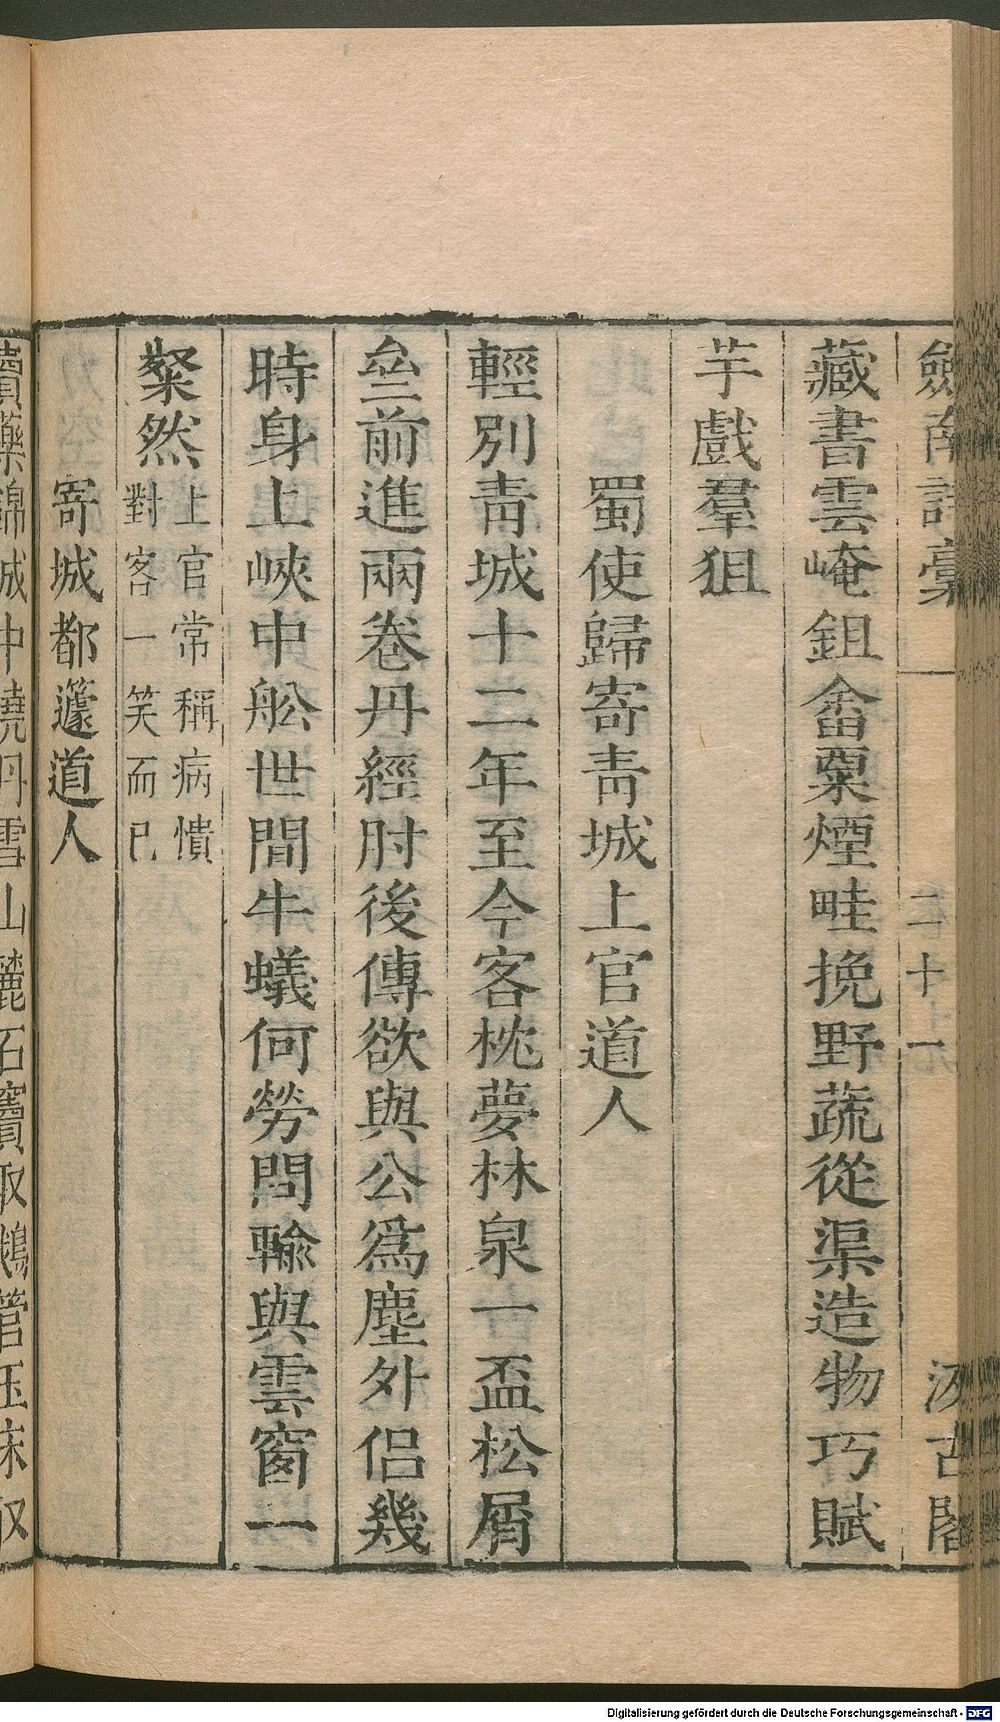 劒南詩稾 二十一 汲古閣
藏書雲崦鉏畬粟煙畦挽野蔬從渠造物巧賦
芋戲羣狙
蜀使歸寄青城上官道人
輕別青城十二年至今客枕夢林泉一盃松屑
垒前進兩卷丹經肘後傳欲與公爲塵外侶幾
時身上峽中舩世間牛蟻何勞問輸與雲窗一
粲然
上官常稱病憒
對客一笑而已
寄城都蘧道人
賣藥錦城中燒丹雪山麓石竇取鵝管玉床収
Digitalisierung gefördert durch die Deutsche Forschungsgemeinschaft - DFG